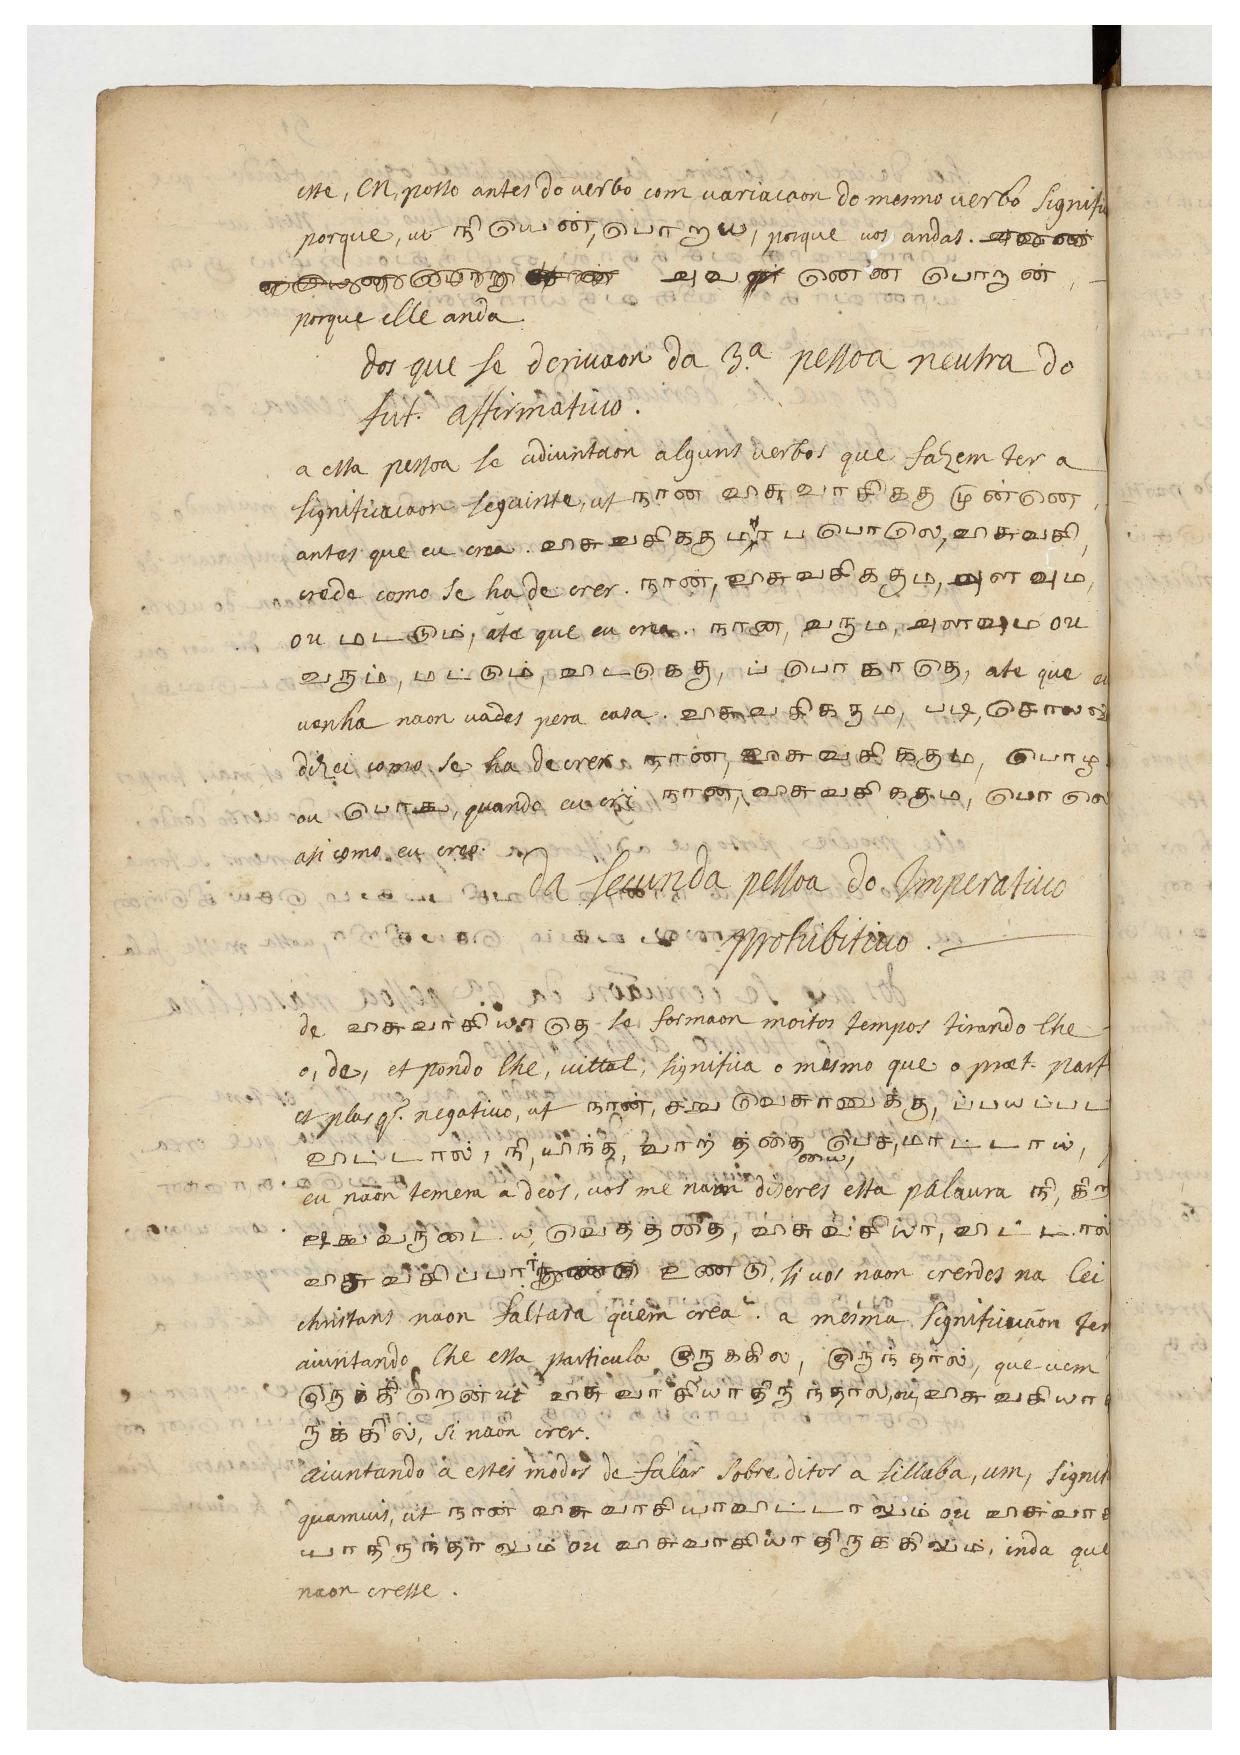 este, en, posto antes do verbo com variacaon do mesmo verbo signifi
porque, ut நியென், பொறய, porque vos andas.
அவ னென்ன பொறான்,
porque elle anda
dos que se derivaon da 3.ª pessoa neutra do
fut. affirmativo.
a esta pessoa se adiuntaon alguns verbos que fazem ter a
significacaon seguinte, ut நான விசுவாசிகத முன்னெ,
antes que eu crea. விசுவசிகதம படுபொலெ, விசுவசி,
crede como se ha de crer. நான், விசுவசிகதும, அளவும,
ou மடடும், ate que eu crea. நான, வருந, அளவும ou
வரும், மட்டும், விட்டுகத, ப் பொகாதெ, ate que eu
venha naon vades pera casa. விசுவசிகதும, படி, சொலல
dizei como se ha de crer நான், விசுவசிகதும, பொழ
ou பொது, quando eu cri நான, விசுவசிகதும, பொலெ
asi como eu creo.
da segunda pessoa do Imperativo
prohibitivo.
de விசுவாசியாதெ se formaon moitos tempos tirando lhe
o, de, et pondo lhe, vittal, significa o mesmo que o præt. part
et plusq. negativo, ut நான், சறுவெசுரனுக்கு, ப்பயப்பட
விட்டால், நி, யிந்த, வாற் த்தை பெச, மாட்டாய்,
eu naon temera a deos, vos me naon diseres esta palaura நி, கிற
வருடைய, வெதத்தை, விசுவசியா, விட்டால்
விசுவசிப்பார் உண்டு, si vos naon crerdes na lei
christans naon faltara quem crea. a mesma significacaon tem
aiuntando lhe esta particula இருககில, இருந்தால், que vem
இருக்கிறென் ut விசுவாசியாதிருந்தால, ou, விசுவசியா
ருக்கில், si naon crer.
aiuntando a estes modos de falar sobre ditos a sillaba, um, signif
quamvis, ut நான் விசுவாசியாவிட்டாலும் ou விசுவாசி
யாதிருந்தாலும் ou விசுவாசியாதிருககிலும், inda que
naon cresse.